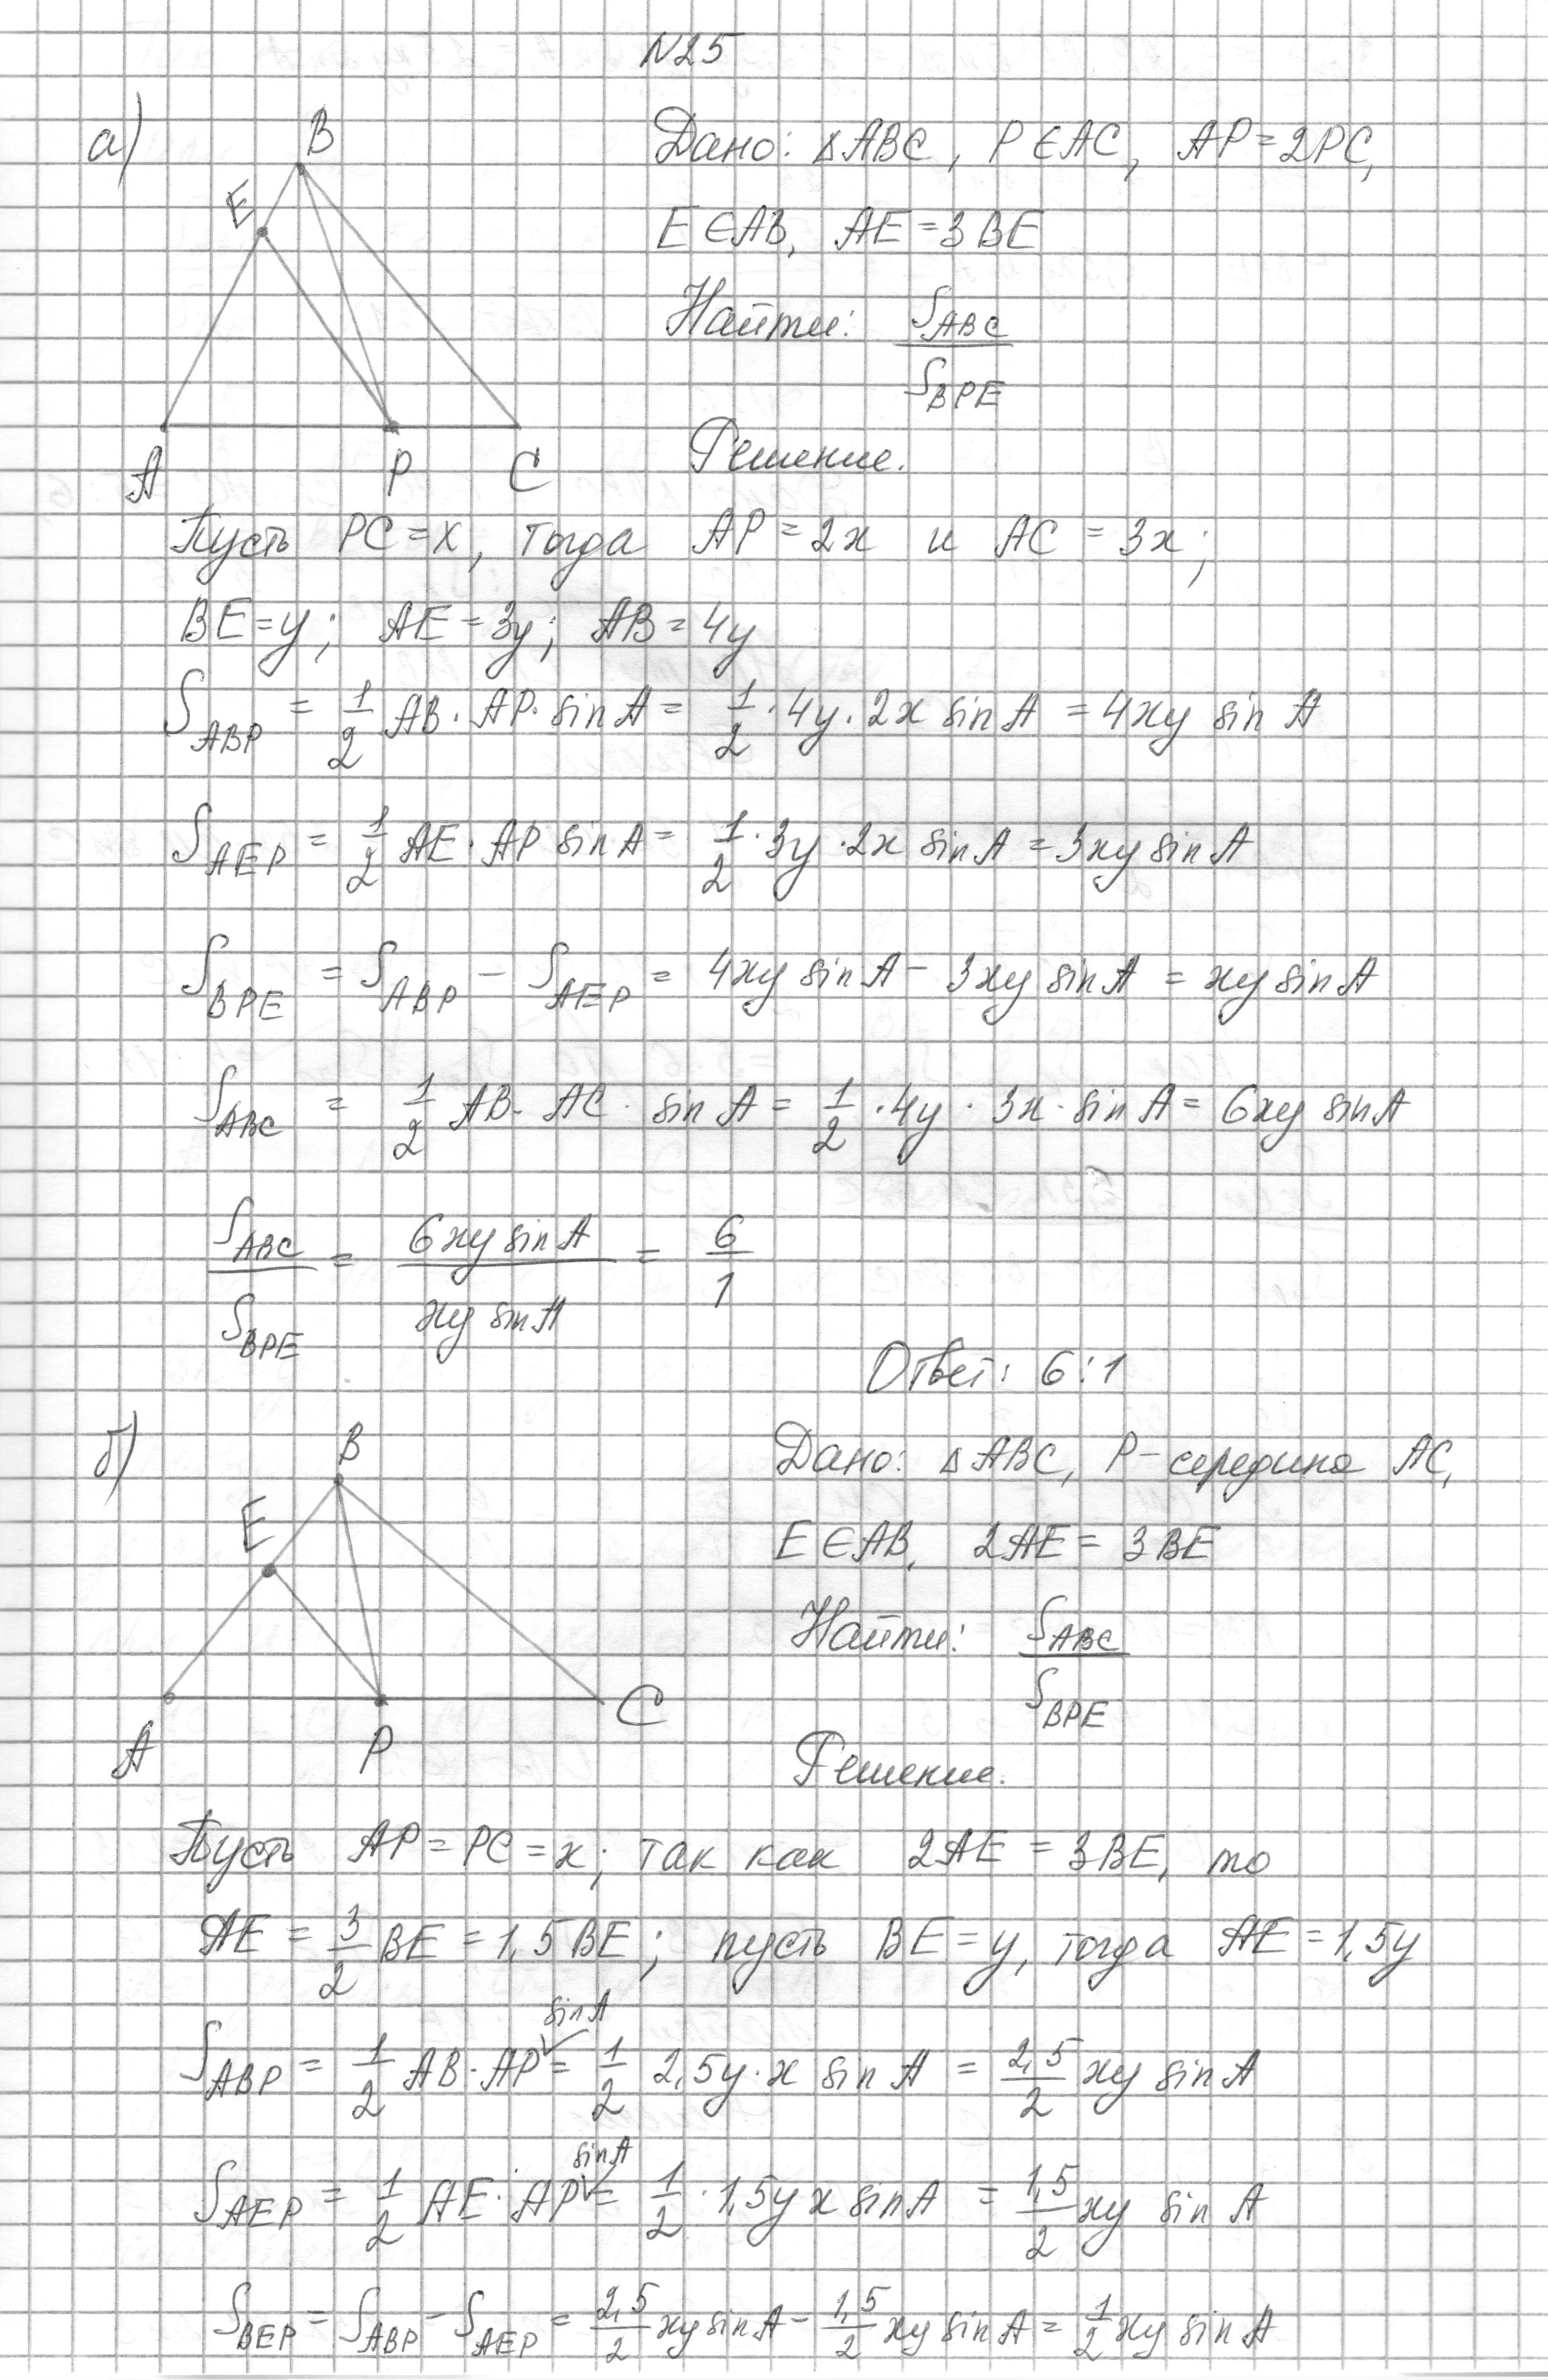 N25
а)
B
E
A
P
C
Дано: △ABC, P∈AC, AP=2PC,
E∈AB, AE=3BE
Найти: S_ABC / S_BPE
Решение.
Пусть PC=x, тогда AP=2x и AC=3x;
BE=y; AE=3y; AB=4y
S_ABP = 1/2 AB·AP·sin A = 1/2·4y·2x sin A = 4xy sin A
S_AEP = 1/2 AE·AP sin A = 1/2·3y·2x sin A = 3xy sin A
S_BPE = S_ABP − S_AEP = 4xy sin A − 3xy sin A = xy sin A
S_ABC = 1/2 AB·AC·sin A = 1/2·4y·3x·sin A = 6xy sin A
S_ABC / S_BPE = 6xy sin A / xy sin A = 6/1
Ответ: 6:1
б)
B
E
A
P
C
Дано: △ABC, P-середина AC,
E∈AB, 2AE=3BE
Найти: S_ABC / S_BPE
Решение.
Пусть AP=PC=x; так как 2AE=3BE, то
AE = 3/2 BE = 1,5BE; пусть BE=y, тогда AE=1,5y
S_ABP = 1/2 AB·AP sin A = 1/2 2,5y·x sin A = 2,5/2 xy sin A
S_AEP = 1/2 AE·AP sin A = 1/2·1,5y x sin A = 1,5/2 xy sin A
S_BEP = S_ABP − S_AEP = 2,5/2 xy sin A − 1,5/2 xy sin A = 1/2 xy sin A